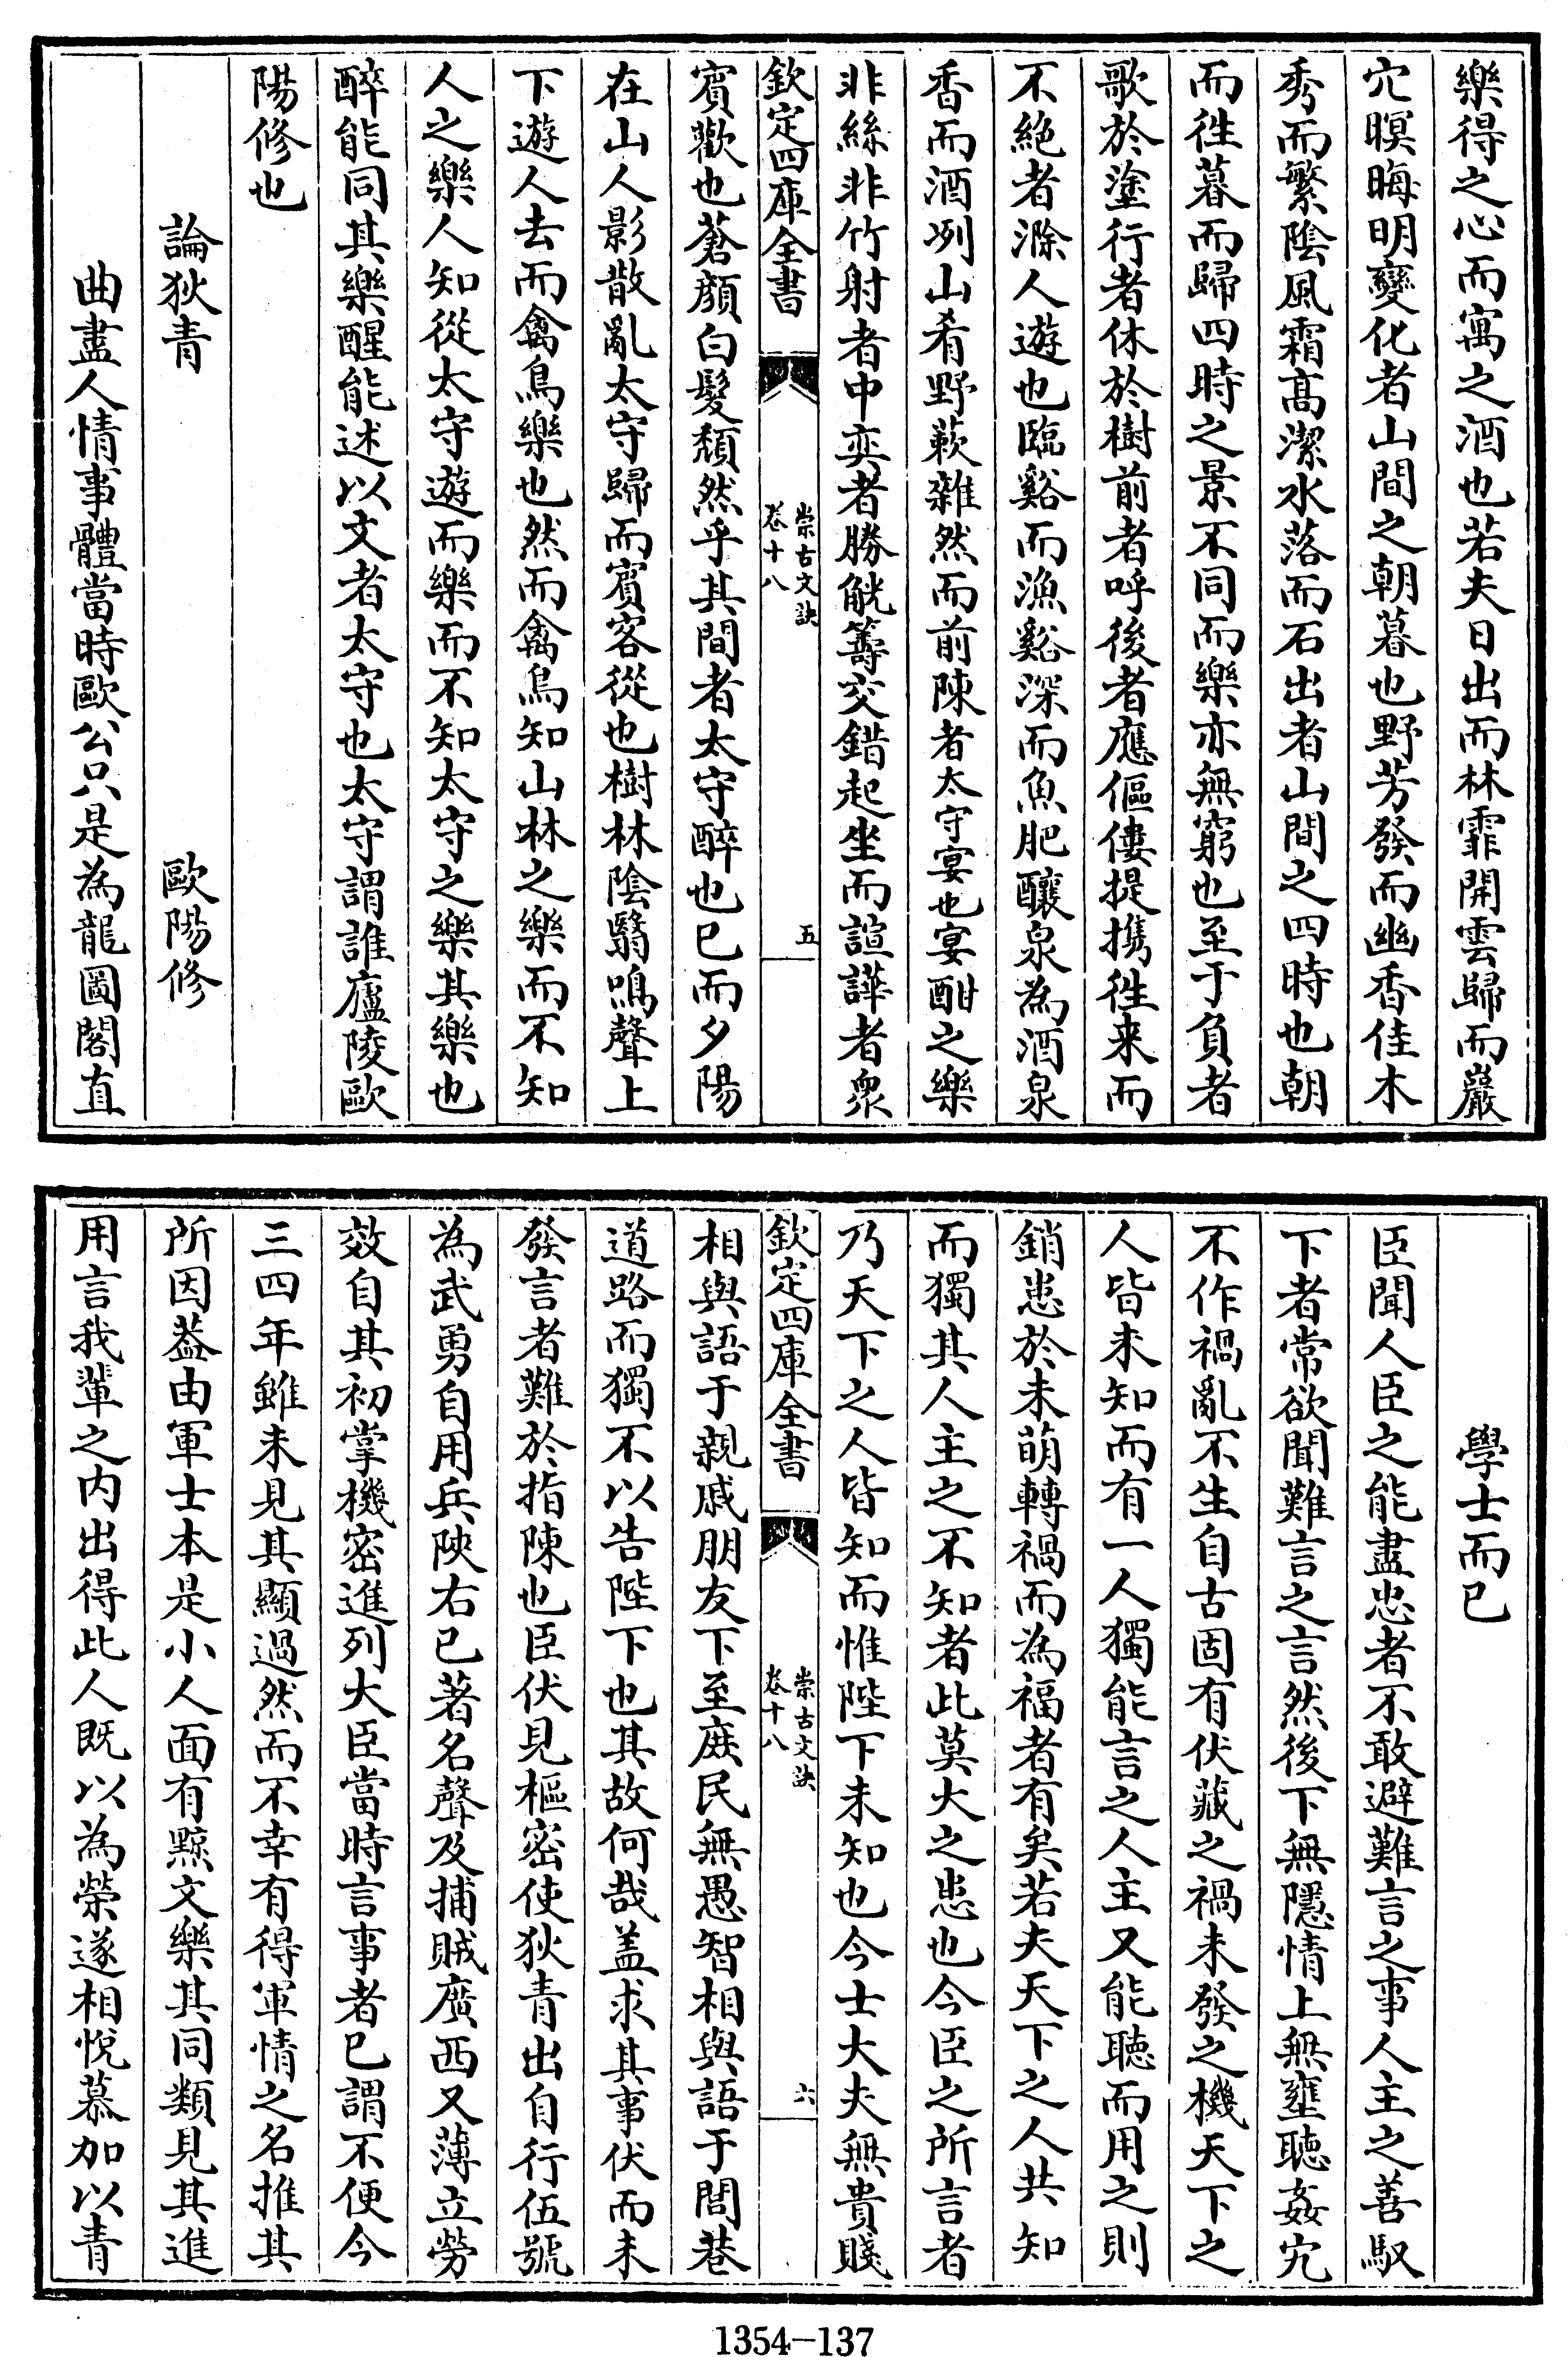 樂得之心而寓之酒也若夫日出而林霏開雲歸而巖
穴暝晦明變化者山間之朝暮也野芳發而幽香佳木
秀而繁陰風霜高潔水落而石出者山間之四時也朝
而徃暮而歸四時之景不同而樂亦無窮也至于負者
歌於塗行者休於樹前者呼後者應傴僂提携徃来而
不絶者滁人遊也臨谿而漁谿深而魚肥釀泉為酒泉
香而酒冽山肴野蔌雜然而前陳者太守宴也宴酣之樂
非絲非竹射者中奕者勝觥籌交錯起坐而諠譁者衆
欽定四庫全書
崇古文訣
卷十八
五
賓歡也蒼顔白髮頹然乎其間者太守醉也已而夕陽
在山人影散亂太守歸而賓客從也樹林陰翳鳴聲上
下遊人去而禽鳥樂也然而禽鳥知山林之樂而不知
人之樂人知從太守遊而樂而不知太守之樂其樂也
醉能同其樂醒能述以文者太守也太守謂誰廬陵歐
陽修也
論狄青 歐陽修
曲盡人情事體當時歐公只是為龍圖閣直
學士而已
臣聞人臣之能盡忠者不敢避難言之事人主之善馭
下者常欲聞難言之言然後下無隱情上無壅聽姦宄
不作禍亂不生自古固有伏藏之禍未發之機天下之
人皆未知而有一人獨能言之人主又能聽而用之則
銷患於未萌轉禍而為福者有矣若夫天下之人共知
而獨其人主之不知者此莫大之患也今臣之所言者
乃天下之人皆知而惟陛下未知也今士大夫無貴賤
欽定四庫全書
崇古文訣
卷十八
六
相與語于親戚朋友下至庶民無愚智相與語于閭巷
道路而獨不以告陛下也其故何哉盖求其事伏而未
發言者難於指陳也臣伏見樞密使狄青出自行伍號
為武勇自用兵陝右已著名聲及捕賊廣西又薄立勞
效自其初掌機密進列大臣當時言事者已謂不便今
三四年雖未見其顯過然而不幸有得軍情之名推其
所因葢由軍士本是小人面有黥文樂其同類見其進
用言我輩之内出得此人既以為榮遂相悅慕加以青
1354—137